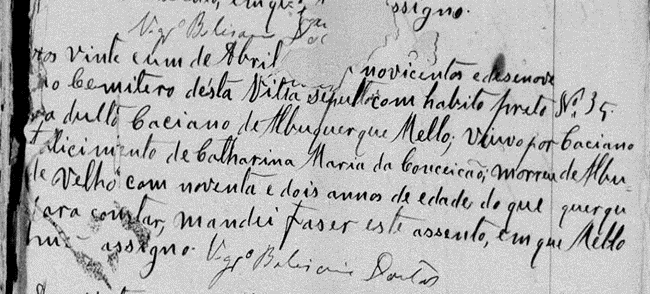 assigno.
Vigrº Belisario
Aos vinte e um de Abril novicentos e desenove
no Cemitero desta Villa sepultou com habito preto
adulto Caciano de Albuquerque Mello, viuvo por
falicimento de Catharina Maria da Conceicão; morreu
de velho com noventa e dois annos de edade do que
para constar, mandei faser este assento, em que
me assigno.
Vigrº Belisario Dantas
Nº. 35.
Caciano
de Albu-
querqu
Mello